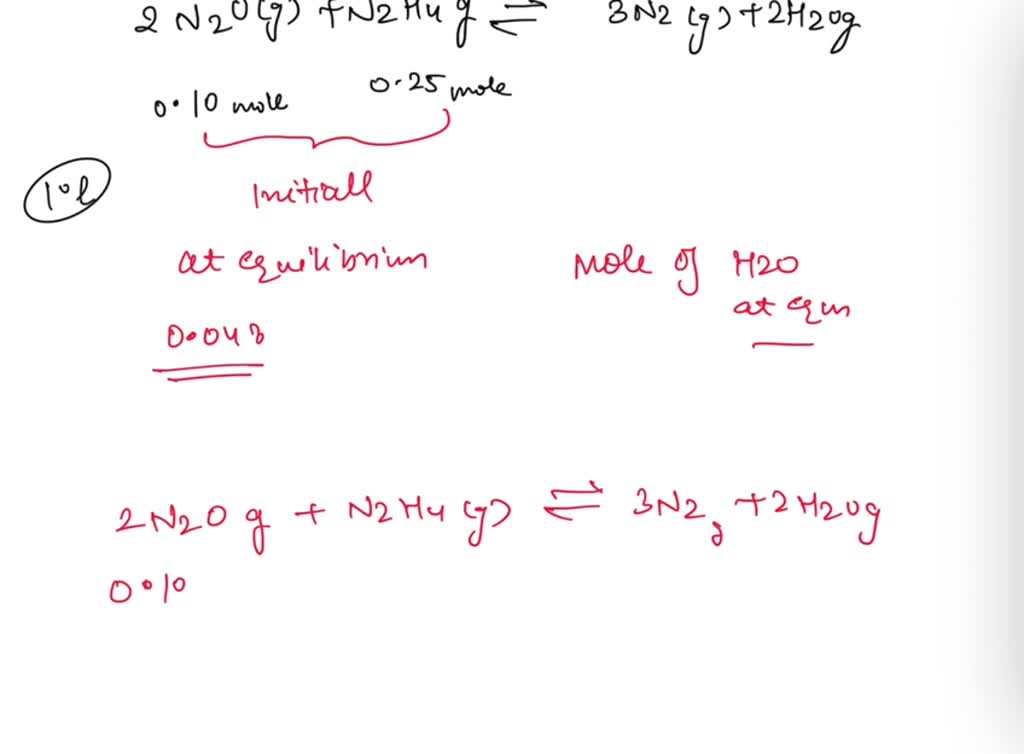 2 N2O(g) + N2H4 g ⇌ 3N2 (g) + 2H2O g
0.10 mole 0.25 mole
Initiall
10l
at equilibrium Mole of H2O
at eqm
0.048
2N2O g + N2H4 (g) ⇌ 3N2 g + 2H2O g
0.10